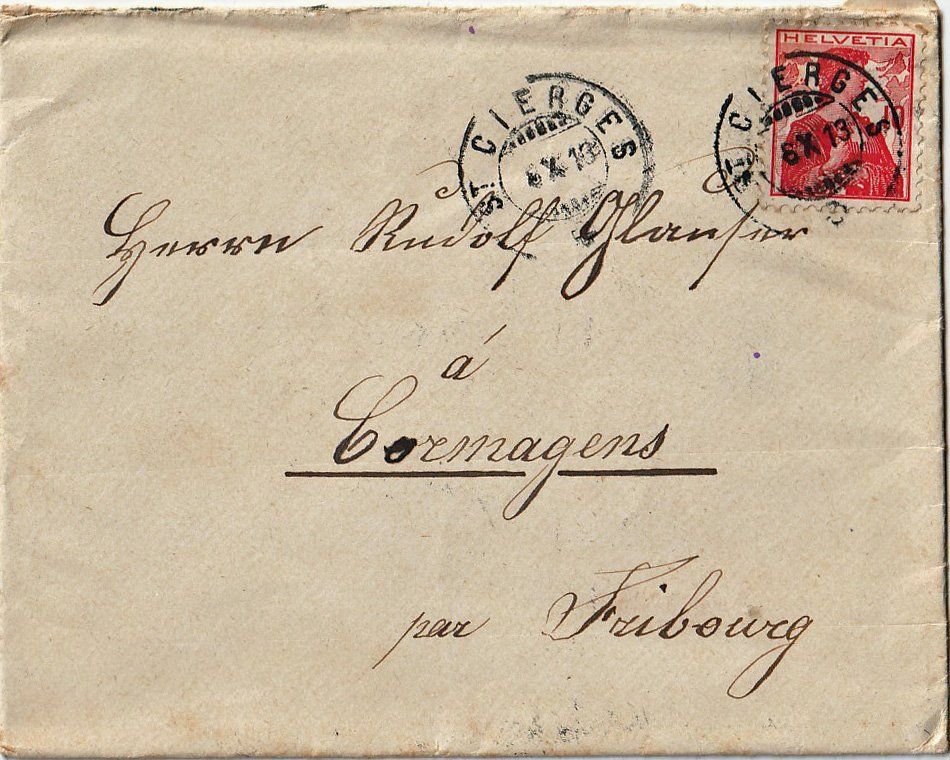 HELVETIA
10
ST CIERGES
6 X 13
ST CIERGES
6 X 13
Herrn Rudolf Glauser
á
Cormagens
par Fribourg